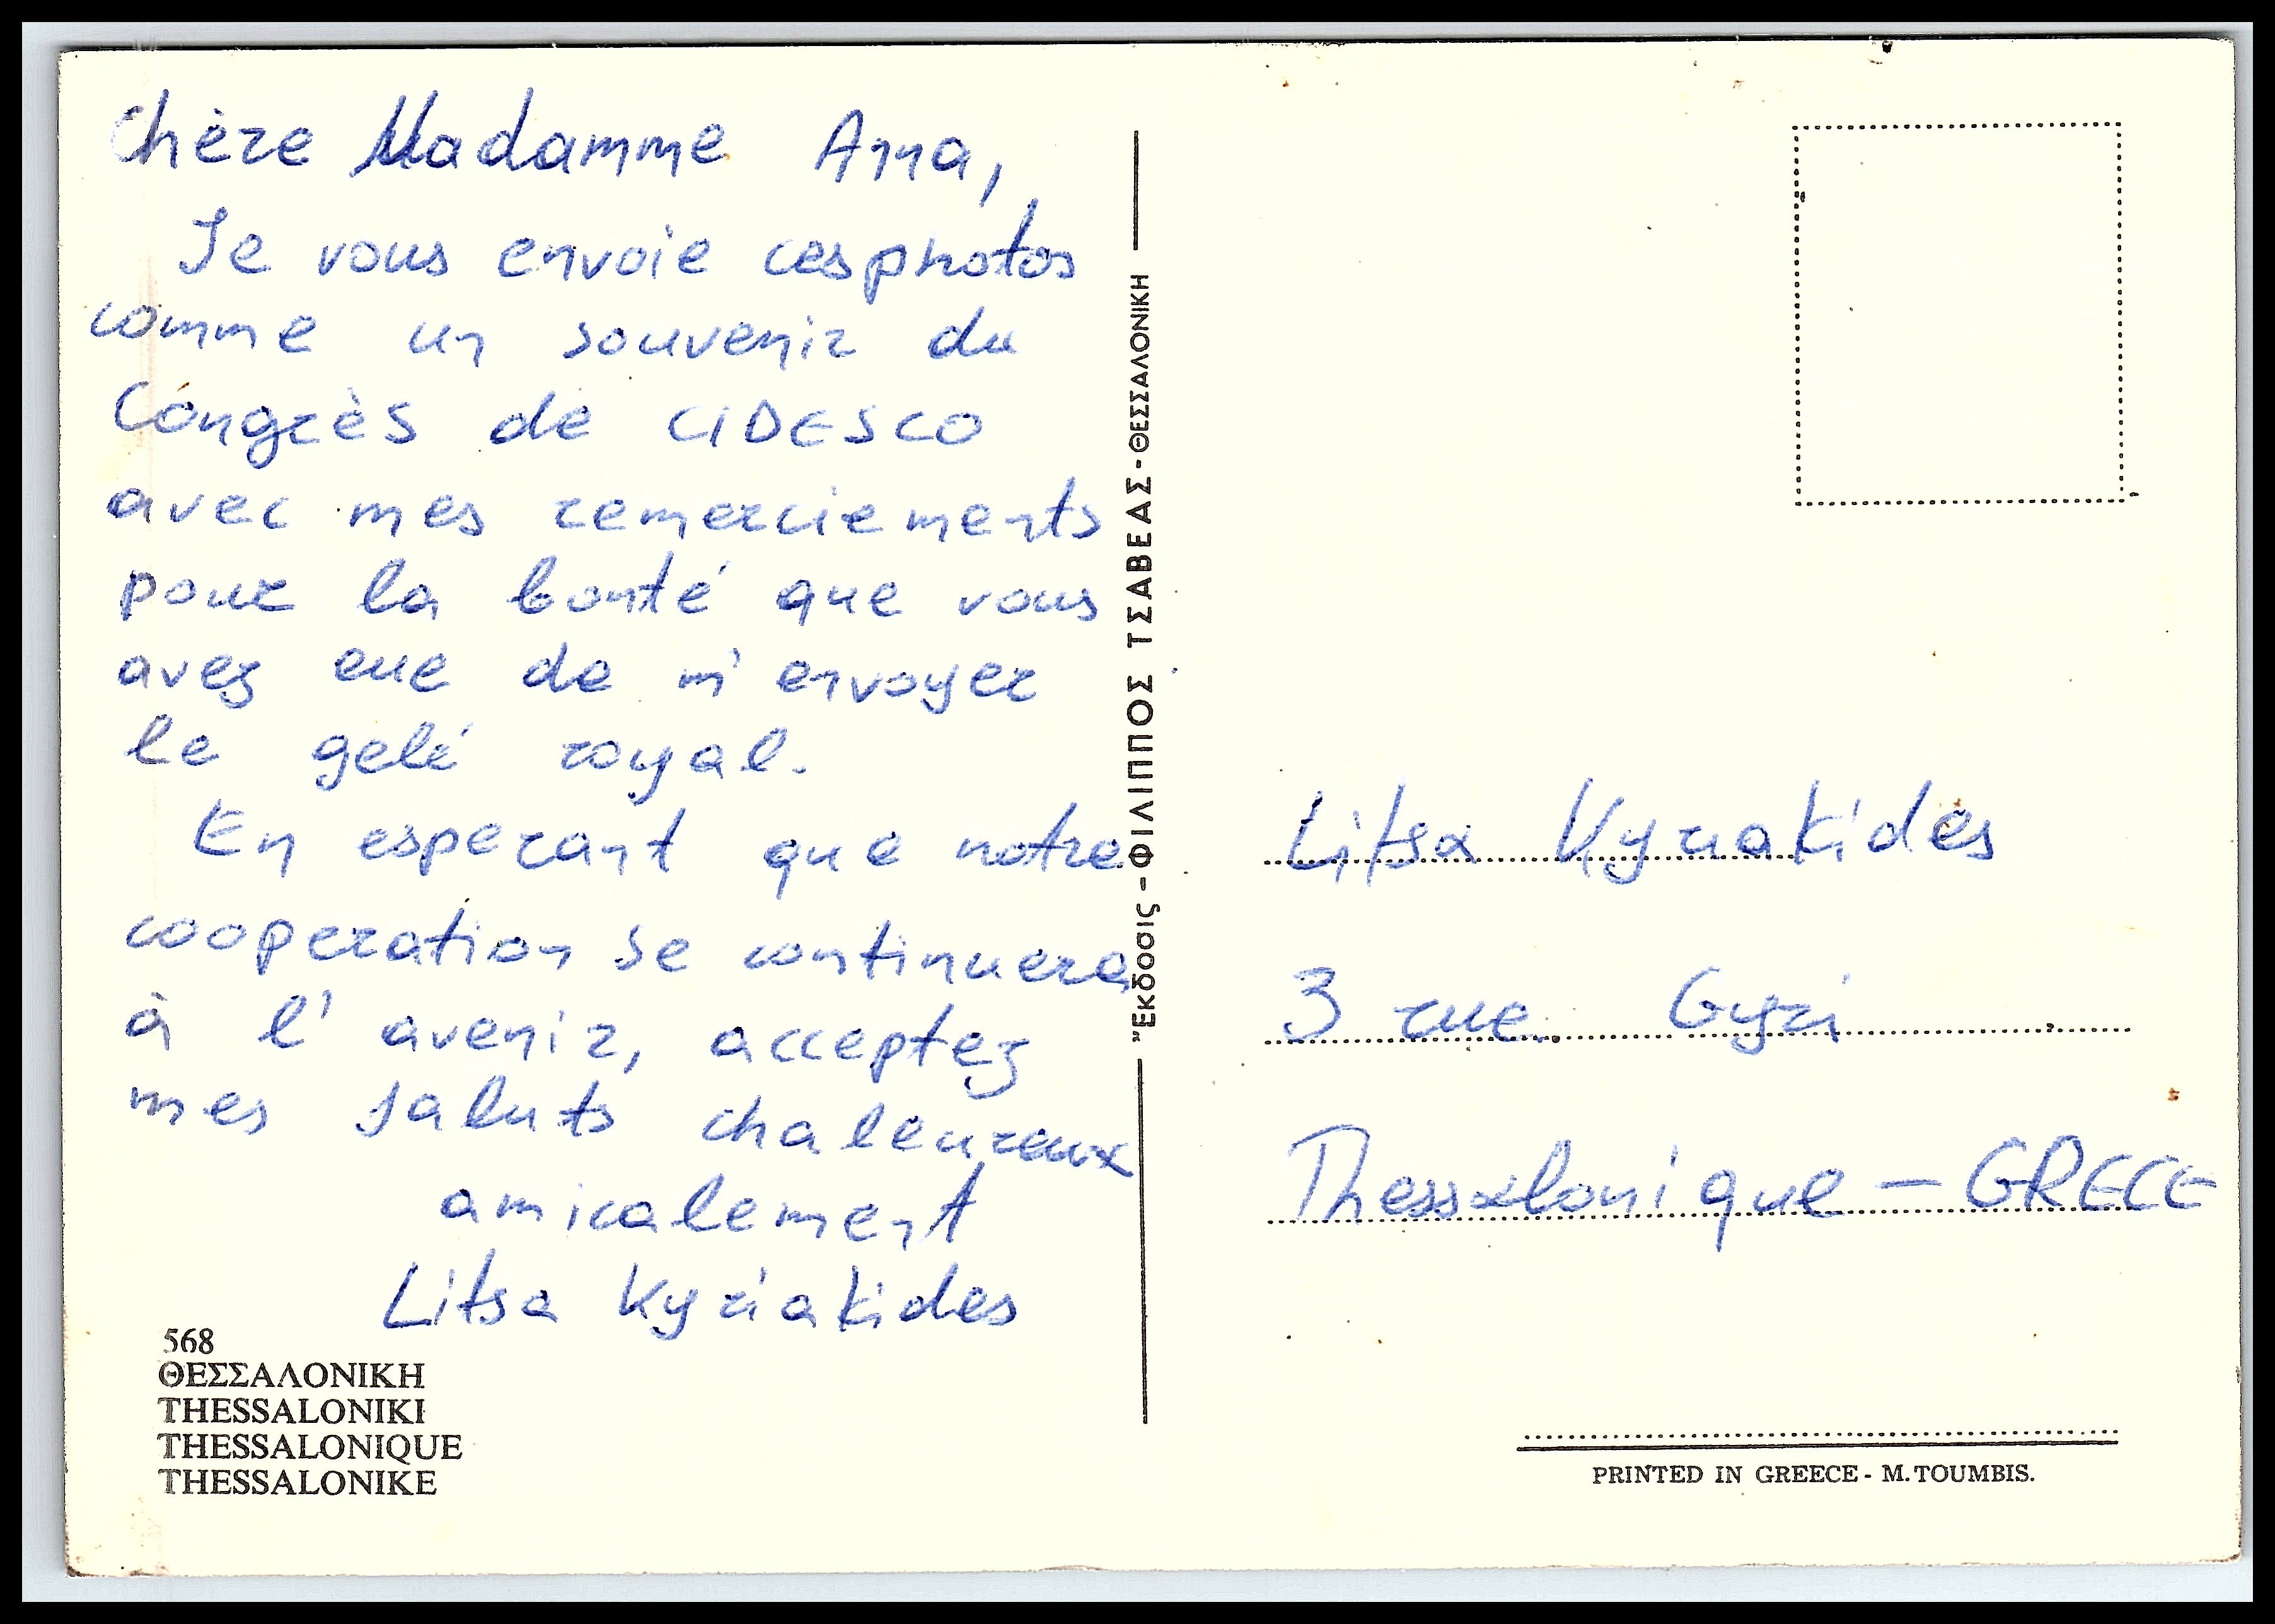 Chère Madamme Anna,
Je vous envoie ces photos
comme un souvenir du
Congrès de CIDESCO
avec mes remerciements
pour la bonté que vous
avez eue de m'envoyer
le gelé royal.
En esperant que notre
cooperation se continuera
à l'avenir, acceptez
mes saluts chaleureux
amicalement
Litsa Kyriakides
568
ΘΕΣΣΑΛΟΝΙΚΗ
THESSALONIKI
THESSALONIQUE
THESSALONIKE
Ἔκδοσις - ΦΙΛΙΠΠΟΣ ΤΣΑΒΕΑΣ - ΘΕΣΣΑΛΟΝΙΚΗ
Litsa Kyriakides
3 rue Gyzi
Thessalonique — GRECE
PRINTED IN GREECE - M. TOUMBIS.